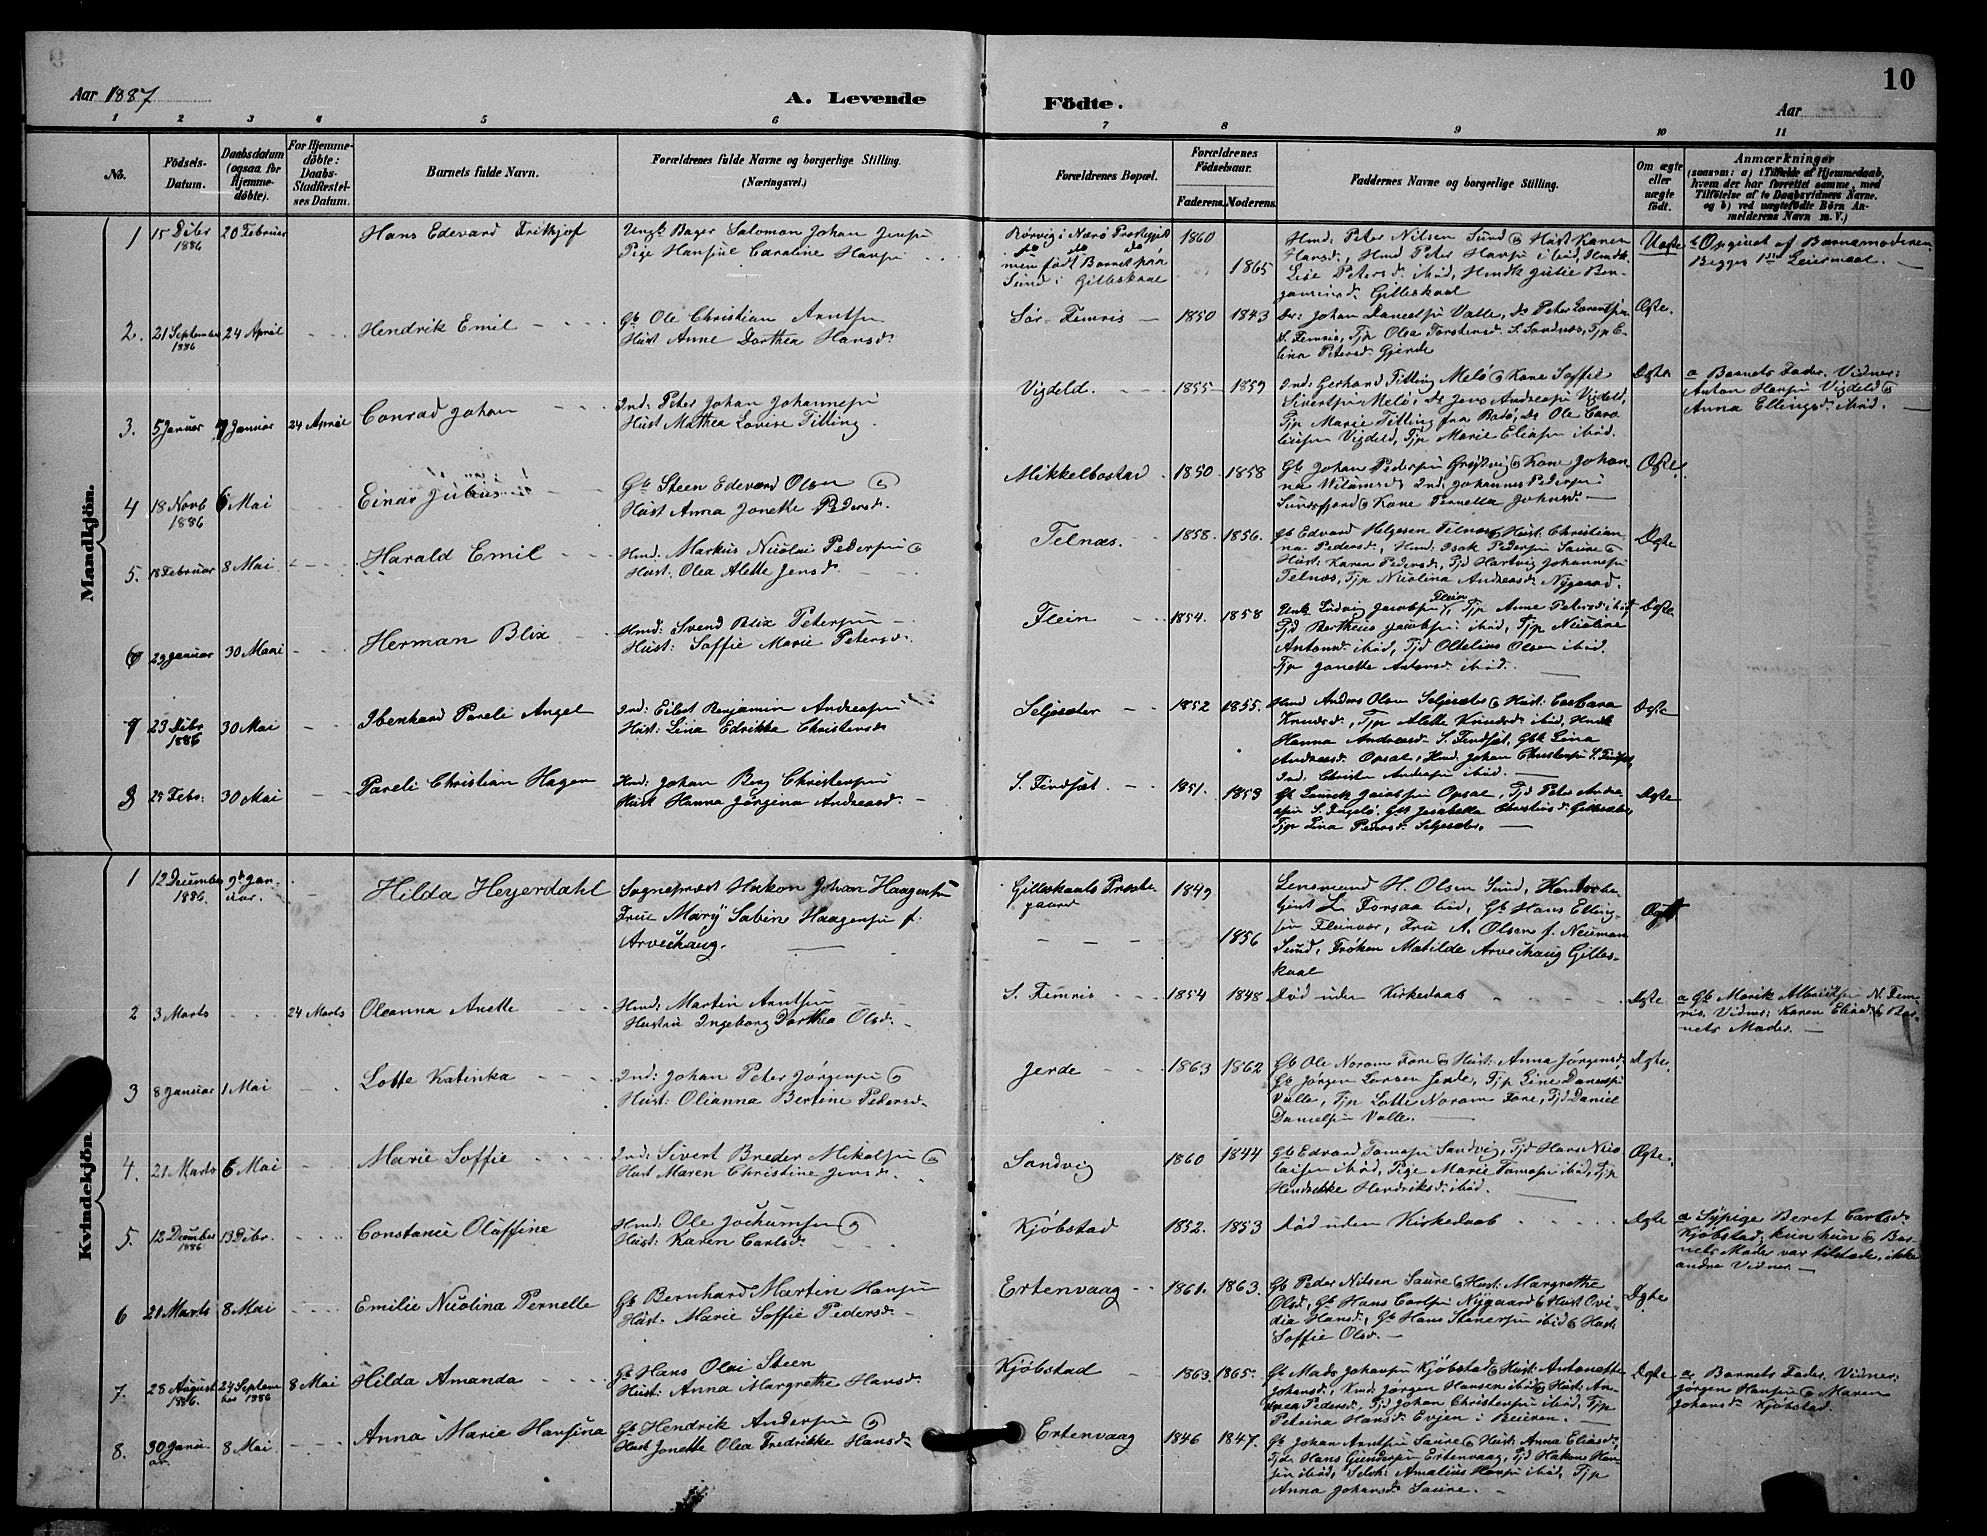 10
Aar 1887
A. Levende
Födte.
Aar
1 2 3 4 5 6 7 8 9 10 11
No.
Födsels-
Datum.
Daabsdatum
(ogsaa for
Hjemme-
döbte).
For Hjemme-
döbte:
Daabs-
Stadfæstel-
ses Datum.
Barnets fulde Navn.
Forældrenes fulde Navne og borgerlige Stilling.
(Næringsvei.)
Forældrenes Bopæl.
Forældrenes
Födselsaar.
Faderens. Moderens.
Faddernes Navne og borgerlige Stilling.
Om ægte
eller
uægte
födt.
Anmærkninger
(saasom: a) i Tilfælde af Hjemmedaab,
hvem der har forrettet samme, med
Tilföielse af to Daabsvidners Navne,
og b) ved uægtefödte Börn An-
melderens Navn m. V.)
Mandkjön.
1
15 Debr
1886
20 Februar
Hans Edevard Fritkjof
Ungk. Bager Salomon Johan Jensen
Pige Hansine Caroline Hansen
Rørvig i Nærø Præstegjeld
men født Barnet paa
Sund i Gilleskaal
1860
1865
Hmd. Peter Nilsen Sund & Hust Karen
Hansd., Hmd Peter Hansen ibid, Hmdk
Lise Petersd. ibid, Hmdk Julie Ben-
jaminsd. Gilleskaal
Uægte
b Opgivet af Barnemoderen
Begges 1ste Leiermaal.
2.
21 September
1886
24 April
Hendrik Emil
Gb Ole Christian Arntsen
Hust Anne Dorthea Hansd.
Sør-Femris
1850 1843
Dr: Johan Danielsen Valle, do Peter Larentsen
S. Femris, Tjp Olea Torstensd. S. Sandnæs, Tjp E-
lina Petersd. Gjerde
Ægte.
3.
5 Januar
9 Januar
24 April
Conrad Johan
Ind: Peter Johan Johannesen
Hust Mathea Lovise Titting.
Vigdeld.
1855 1859
Ind: Gerhard Titting Melø & Kone Soffie
Sivertsen Melø, do Jens Andreasen Vigdeld,
Tjp Marie Titting fra Bodø, do Ole Caro-
liusen Vigdeld, Tjp Marie Eliasen ibid.
Ægte
a Barnets Fader. Vidner:
Anton Hansen Vigdeld &
Anna Ellingsd. ibid.
4
18 Novb
1886
6 Mai
Einar Julius
Gb Steen Edevard Olsen &
Hust Anna Jonette Pedersd.
Mikkelbostad
1850 1858
Gb Johan Pedersen Grøtvig & Kone Johan-
na Wilumsd., Ind. Johannes Pedersen
Sundsfjord & Kone Pernella Johnsd.
Ægte
5.
18 Februar
8 Mai
Harald Emil
Hmd. Markus Nicolai Pedersen &
Hust: Olea Alette Jensd.
Telnæs.
1858. 1856.
Gb Edvard Helgesen Telnæs & Hust Christian-
na Pedersd., Hmd: Isak Pedersen Saure &
Hust: Karen Pedersd., Tjd Hartvig Johannesen
Telnæs, Tjp Nicolina Andreasd. Nygaard.
Ægte
6
29 Januar
30 Mai
Herman Blix
Hmd: Svend Blix Petersen
Hust: Soffie Marie Petersd.
Flein
1854. 1858
Ungk Ludvig Jacobsen Flein, Tjp Anne Petersd ibid
Tjd Bertheus Jacobsen ibid, Tjp Nicoline
Antonsd. ibid, Tjd Oltelius Olsen ibid.
Tjp Janette Antonsd. ibid.
Ægte
7
23 Debr
1886
30 Mai
Ibenhard Pareli Angel
Ind: Eilert Benjamin Andreasen
Hust: Lina Edrikka Christensd.
Seljesæter
1852 1855.
Hmd Anders Olsen Seljesæter & Hust: Barbara
Knudsd., Tjp Alette Knudsd. ibid, Hmdk
Hanna Andreasd. S. Findset, Gbk Lina
Andreasd. Opsal, Hmd. Johan Christensen S. Findset,
Ind. Christen Andersen ibid.
Ægte
8
25 Febr.
30 Mai
Pareli Christian Hagen
Hmd: Johan Berg Christensen
Hust Hanna Jørgina Andreasd.
S. Findset.
1851. 1853
Gb Laurick Jacobsen Opsal, Tjd Peter Andre-
asen S. Fugelø, Gbk Jesabella Christensd. Gilleskaal,
Tjp Lina Pedersd. Seljesæter.
Ægte
Kvindekjön.
1
12 December
1886.
9de Jan-
uar.
Hilda Heyerdahl
Sognepræst Hakon Johan Haagensen
Frue Mary Sabine Haagensen f.
Arveschaug.
Gilleskaals Præste-
gaard
1849
1856
Lensmand H. Olsen Sund, Kontorbe-
tjent L. Forsaa ibid, Gb Hans Elling-
sen Fleinvær, Fru A. Olsen f. Neumann
Sund, Frøken Matilde Arveschaug Gilles-
kaal
Ægte
2
3 Marts
24 Marts
Oleanna Anette
Hmd: Martin Arntsen
Hustru Ingeborg Dorthea Olsd.
S. Femris
1854 1848
Død uden Kirkedaab
Ægte
a Gb Marik Albrictsen N. Fem-
ris. Vidner: Karen Eliasd. & Bar-
nets Moder.
3
8 Januar
1 Mai
Lotte Katinka
Ind: Johan Peter Jørgensen &
Hust: Olianna Bertine Pedersd.
Jerde
1863 1862
Gb Ole Norom Fore & Hust: Anna Jørgensd.
Gb Jørgen Larsen Jerde, Tjp Line Danielsen
Valle, Tjp Lotte Norom Fore, Tjd Daniel
Danielsen Valle.
Ægte.
4.
21 Marts
6 Mai
Marie Soffie
Ind: Sivert Breder Mikalsen &
Hust Maren Christine Jensd.
Sandvig
1860 1844
Gb Edvard Tomasen Sandvig, Tjd Hans Nico-
laisen ibid, Pige Marie Tomasen ibid, Tjp
Hendrikke Hendriksd. ibid.
Ægte.
5.
12 December
1886
13 Debr.
Constance Olaffine
Hmd: Ole Jochumsen &
Hust: Karen Carlsd.
Kjøbstad
1852. 1853
død uden Kirkedaab
Ægte
a Sypige Beret Carlsd.
Kjøbstad; kun hun & Bar-
nets Moder var tilstede, ikke
andre Vidner.
6
21 Marts
8 Mai
Emilie Nicolina Pernelle
Gb Bernhard Martin Hansen
Hust: Marie Soffie Pedersd.
Ertenvaag
1861. 1863.
Gb Peder Nilsen Saure & Hust: Margrethe
Olsd, Gb Hans Carlsen Nygaard & Hust Ovi-
dia Hansd., Gb Hans Stenersen ibid & Hust:
Soffie Olsd.
Ægte
7.
28 August
1886.
24 Septem-
ber 1886
8 Mai
Hilda Amanda
Gb Hans Olai Steen
Hust: Anna Margrethe Hansd.
Kjøbstad
1863. 1865.
Gb Mads Johansen Kjøbstad & Hust: Antonette
Johansd., Hmd. Jørgen Hansen ibid & Hust: An-
drea Pedersd., Tjd Johan Christensen ibid, Tjp
Petrina Hansd. Evjen i Beiren.
Ægte
a Barnets Fader. Vidner:
Jørgen Hansen & Maren
Johansd. Kjøbstad.
8.
30 Janu-
ar.
8 Mai
Anna Marie Hansina
Gb Hendrik Andersen &
Hust Jonette Olea Fredrikke Hansd.
Ertenvaag
1846 1847.
Gb Johan Arntsen Saure & Hust: Anna Eliasd.,
Tjd. Hans Gundersen Ertenvaag, Tjd Hakon Han-
sen ibid, Selvh: Amalius Hansen ibid, Tjp
Anna Johansd. Saure.